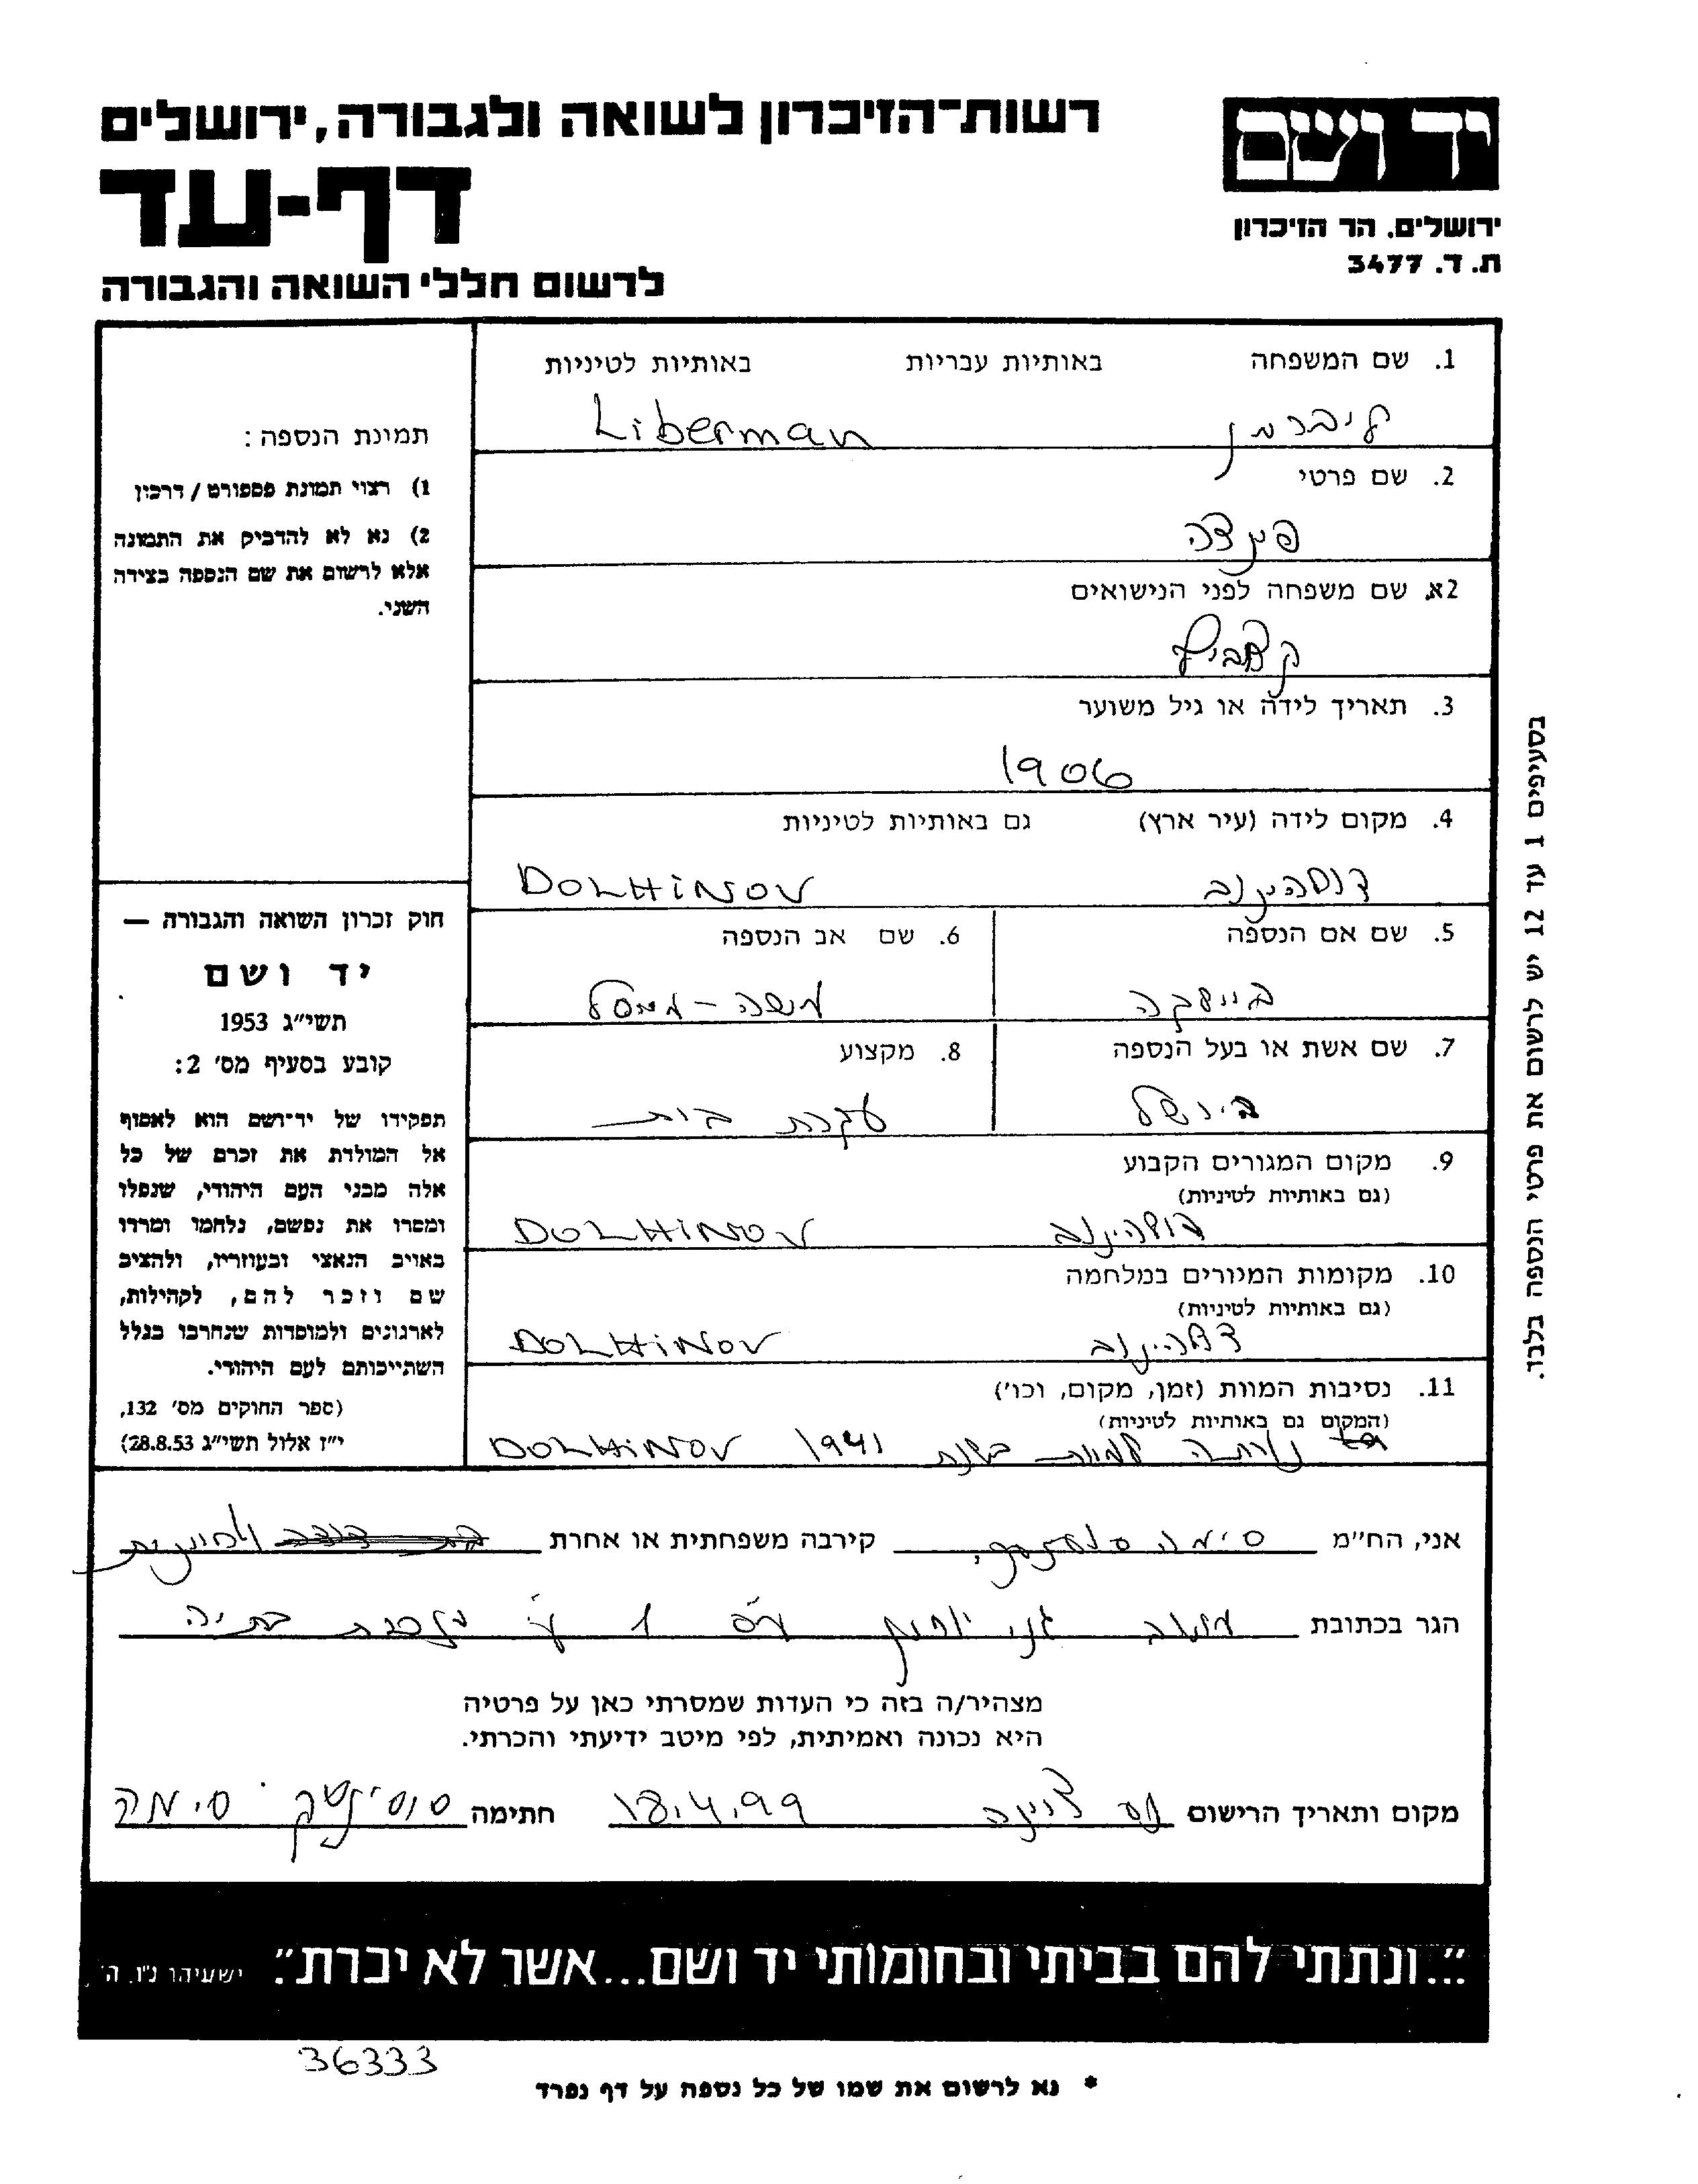 רשות־הזיכרון לשואה ולגבורה, ירושלים
יד ושם
דף-עד
ירושלים. הר הזיכרון
ת. ד. 3477
לרשום חללי השואה והגבורה
1. שם המשפחה באותיות עבריות באותיות לטיניות
ליברמן Liberman
2. שם פרטי
2א. שם משפחה לפני הנישואים
3. תאריך לידה או גיל משוער
1906
4. מקום לידה (עיר ארץ) גם באותיות לטיניות
DOLHINOV
5. שם אם הנספה 6. שם אב הנספה
משה -
7. שם אשת או בעל הנספה 8. מקצוע
עקרת בית
9. מקום המגורים הקבוע
(גם באותיות לטיניות)
DOLHINOV
10. מקומות המגורים במלחמה
(גם באותיות לטיניות)
DOLHINOV
11. נסיבות המוות (זמן, מקום, וכו')
(המקום גם באותיות לטיניות)
נורתה למוות בשנת 1941 DOLHINOV
תמונת הנספה:
1) רצוי תמונת פספורט / דרכון
2) נא לא להדביק את התמונה
אלא לרשום את שם הנספה בצידה
השני.
חוק זכרון השואה והגבורה —
יד ושם
תשי״ג 1953
קובע בסעיף מס׳ 2:
תפקידו של יד־ושם הוא לאסוף
אל המולדת את זכרם של כל
אלה מבני העם היהודי, שנפלו
ומסרו את נפשם, נלחמו ומרדו
באויב הנאצי ובעוזריו, ולהציב
שם וזכר להם, לקהילות,
לארגונים ולמוסדות שנחרבו בגלל
השתייכותם לעם היהודי.
(ספר החוקים מס׳ 132,
י״ז אלול תשי״ג 28.8.53)
בסעיפים 1 עד 12 יש לרשום את פרטי הנספה בלבד.
אני, הח״מ סימה קירבה משפחתית או אחרת
הגר בכתובת מושב 1 בתיה
מצהיר/ה בזה כי העדות שמסרתי כאן על פרטיה
היא נכונה ואמיתית, לפי מיטב ידיעתי והכרתי.
מקום ותאריך הרישום נס ציונה 18.4.99 חתימה סימה
״...ונתתי להם בביתי ובחומותי יד ושם...אשר לא יכרת״. ישעיהו נ״ו. ה׳
36333
* נא לרשום את שמו של כל נספה על דף נפרד